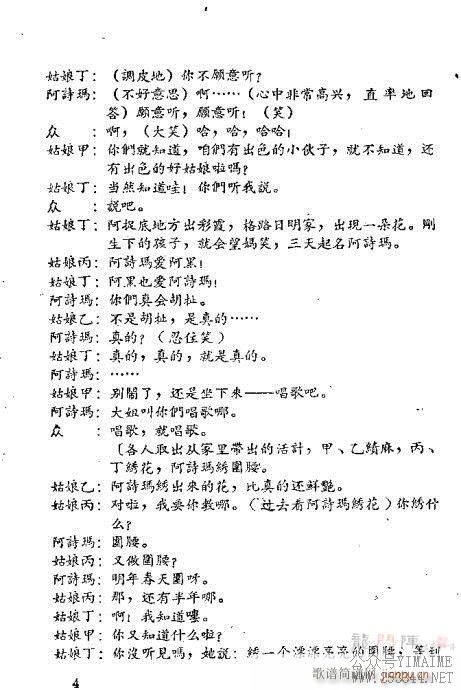 姑娘丁：（調皮地）你不願意听？
阿詩瑪：（不好意思）啊……（心中非常高兴，直率地回
答）願意听，願意听！（笑）
众　　：啊，（大笑）哈，哈，哈哈！
姑娘甲：你們就知道，咱們有出色的小伙子，就不知道，还
有出色的好姑娘啦嗎？
姑娘丁：当然知道哇！你們听我說。
众　　：說吧。
姑娘丁：阿捉底地方出彩霞，格路日明家，出現一朵花。剛
生下的孩子，就会望媽笑，三天起名阿詩瑪。
姑娘丙：阿詩瑪爱阿黑！
姑娘丁：阿黑也爱阿詩瑪！
阿詩瑪：你們真会胡扯。
姑娘乙：不是胡扯，是真的……
阿詩瑪：真的？（忍住笑）
姑娘丁：真的，真的，就是真的。
阿詩瑪：……
姑娘甲：别鬧了，还是坐下来——唱歌吧。
阿詩瑪：大姐叫你們唱歌哪。
众　　：唱歌，就唱歌。
〔各人取出从家里帶出的活計，甲、乙績麻，丙、
丁綉花，阿詩瑪綉圍腰。
姑娘乙：阿詩瑪綉出來的花，比真的还鮮艷。
姑娘丙：对啦，我要你教哪。（过去看阿詩瑪綉花）你綉什
么？
阿詩瑪：圍腰。
姑娘丙：又做圍腰？
阿詩瑪：明年春天圍呀。
姑娘丙：那，还有半年哪。
姑娘丁：啊！我知道嘍。
姑娘甲：你又知道什么啦？
姑娘丁：你沒听見嗎，她說：綉一个漂漂亮亮的圍腰，等到
4
龍門陣
歌谱简谱网
公众号YIMAIME